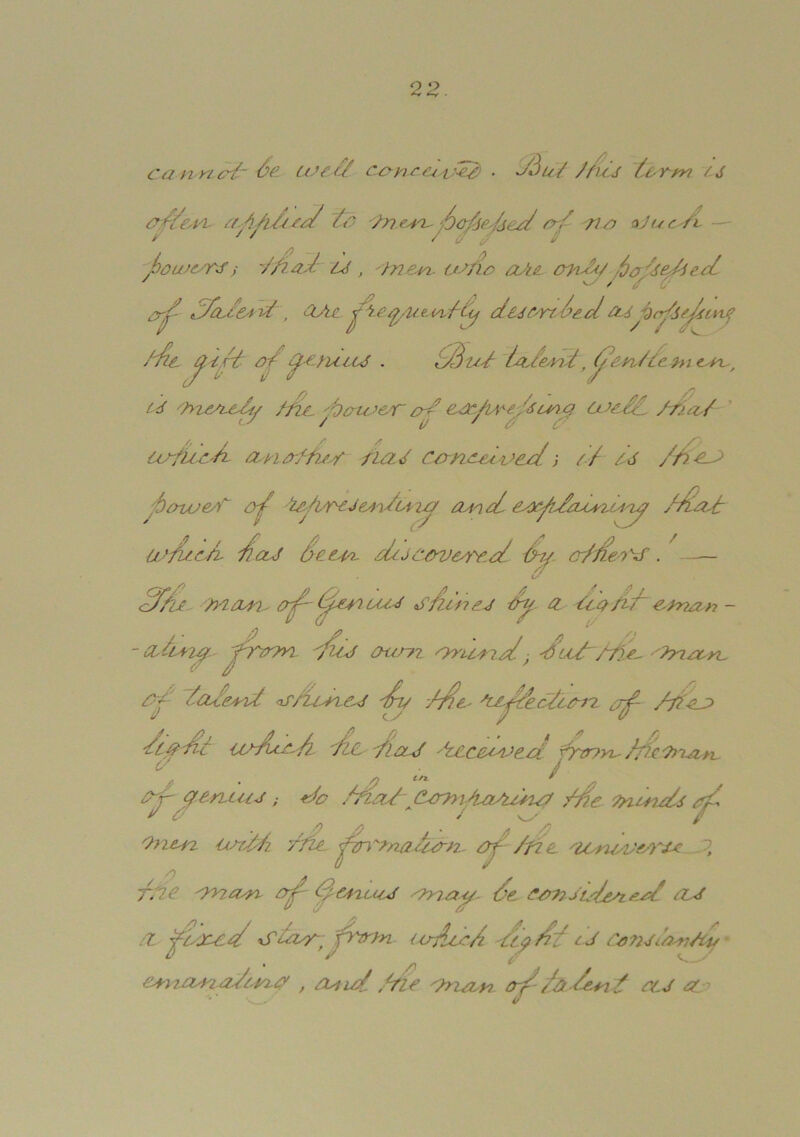 22.
cannot be well conceived. But this term is
often applied to men possessed of no such —
powers; that is, men who are only possessed
of Talent, are frequently described as possessing
the gift of genius. But talent, Gentlemen,
is merely the power of expressing well that
which another has conceived; it is the
power of representing and explaining that
which has been discovered by others. —
The man of Genius shines by a light eman-
-ating from his own mind; but the man
of talent shines by the reflection of the
light which he has received from the man
of genius; so that in comparing the minds of
men with the formation of the universe,
the man of Genius may be considered as
a fixed star, from which light is constantly
emanating, and the man of talent as a